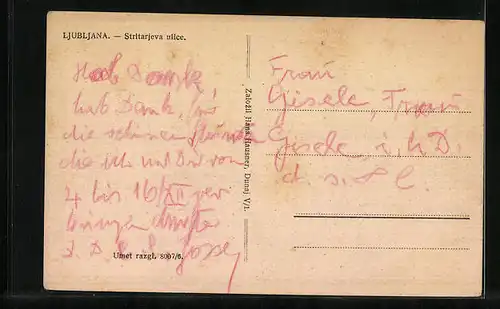 LJUBLJANA. — Stritarjeva ulice.
Hab Dank
hab Dank, für
die schönen Stunden
die ich mit Dir von
4 bis 16/XII ver
bringen durfte
Josef
Umet razgl. 8007/6.
Založil Hans Hausner, Dunaj V/1.
Frau
Gisele, Frau
Gisele i. h D.
d. s. 8 C.